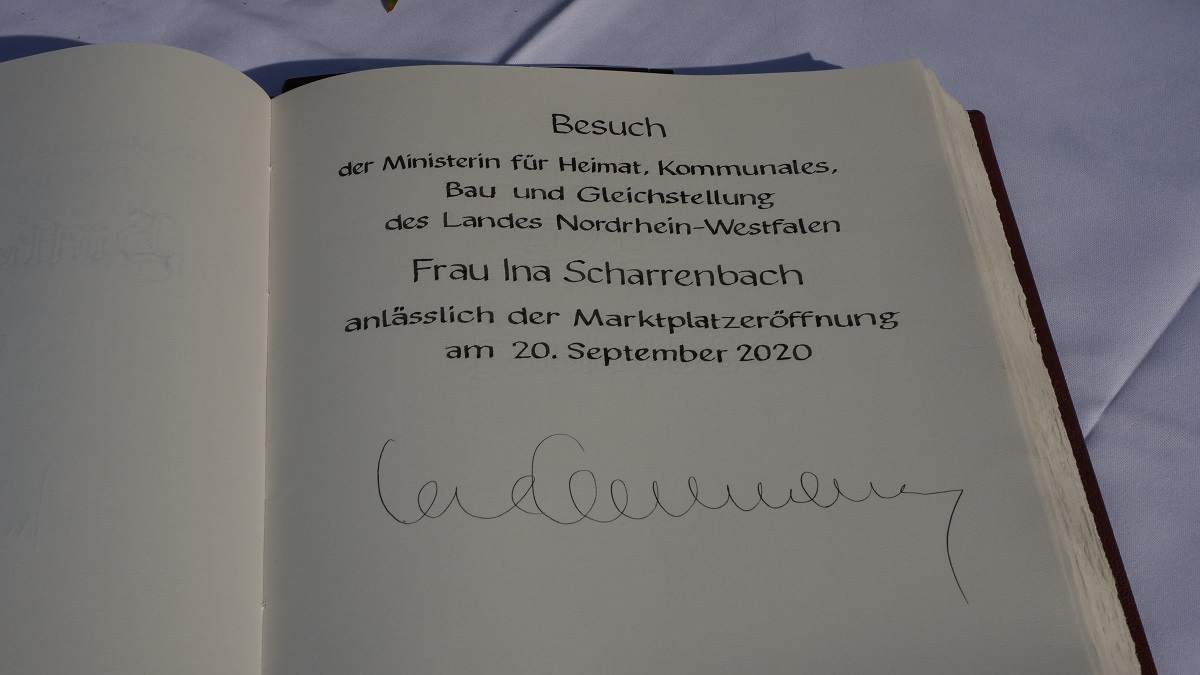 Besuch
der Ministerin für Heimat, Kommunales,
Bau und Gleichstellung
des Landes Nordrhein-Westfalen
Frau Ina Scharrenbach
anlässlich der Marktplatzeröffnung
am 20. September 2020